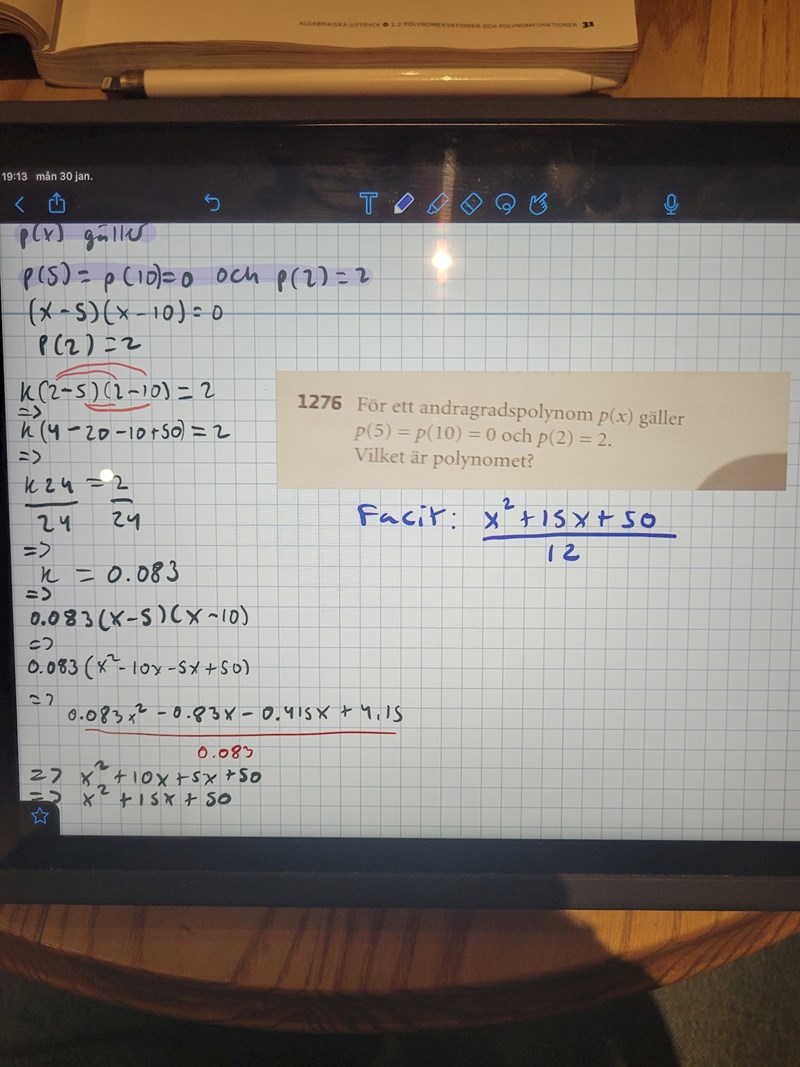 ALGEBRAISKA UTTRYCK 1.2 POLYNOMEKVATIONER OCH POLYNOMFUNKTIONER 31
19:13 mån 30 jan.
p(x) gäller
p(5) = p(10)=0 och p(2) = 2
(x-5)(x-10)=0
P(2)=2
k(2-5)(2-10) = 2
=>
k(4-20-10+50)=2
=>
k24 = 2
24 24
=>
k = 0.083
=>
0.083(x-5)(x-10)
=>
0.083(x²-10x-5x+50)
=>
0.083x² - 0.83x - 0.415x + 4.15
0.083
=> x² + 10x + 5x + 50
=> x² + 15x + 50
1276 För ett andragradspolynom p(x) gäller
p(5) = p(10) = 0 och p(2) = 2.
Vilket är polynomet?
Facit: x² + 15x + 50
12